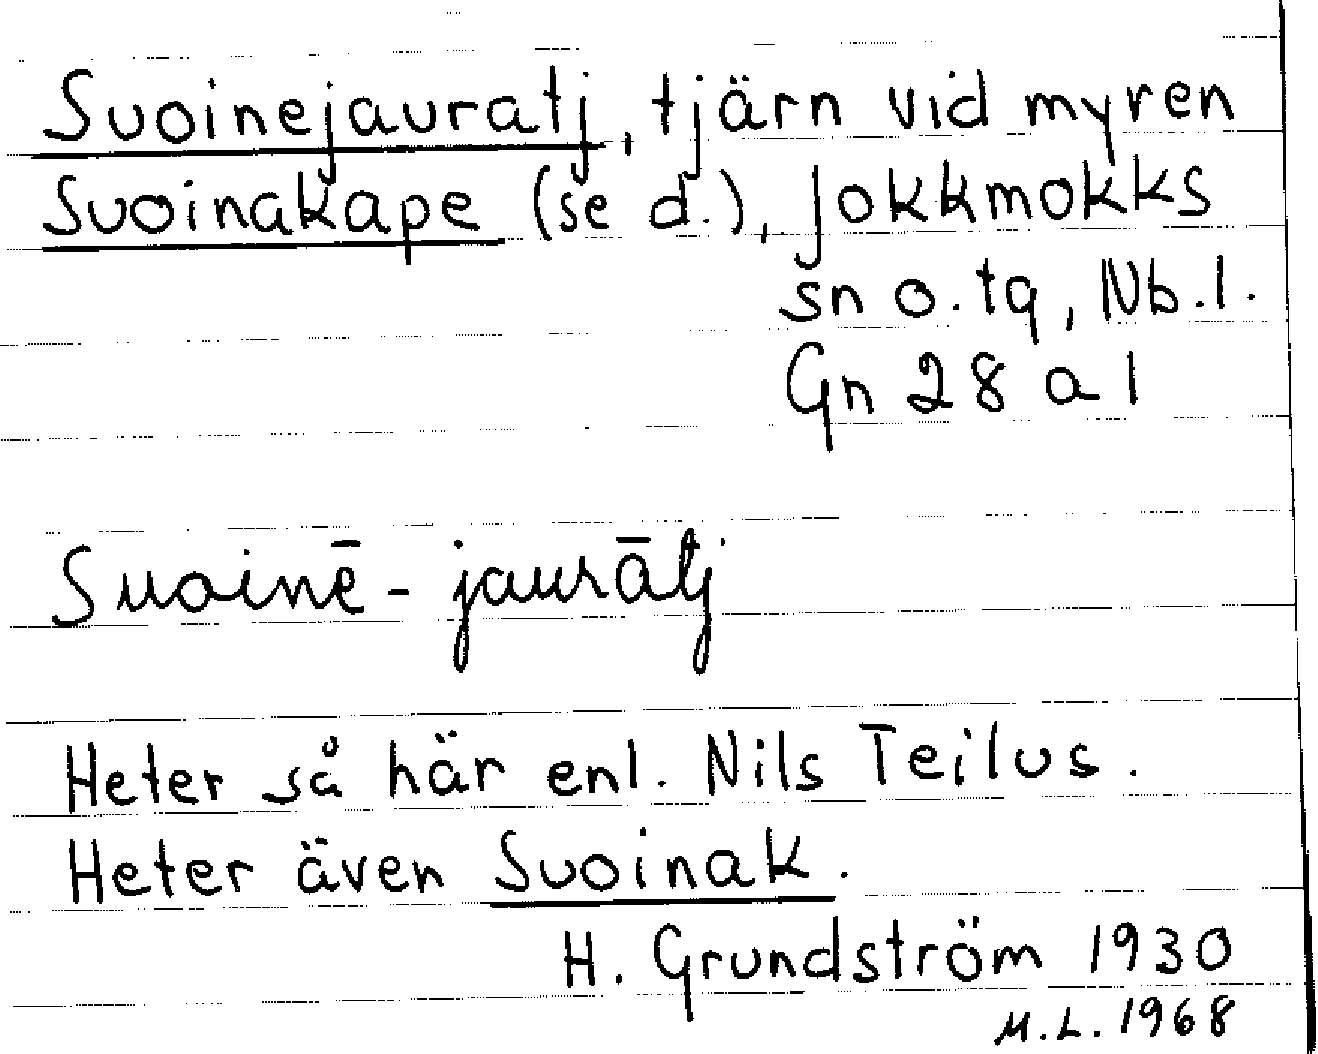 Suoinejauratj, tjärn vid myren
Suoinakape (se d.), Jokkmokks
sn o. tg, Nb.l.
Gn 28 a 1
Suoinē-jaurātj
Heter så här enl. Nils Teilus.
Heter även Suoinak.
H. Grundström 1930
M.L. 1968